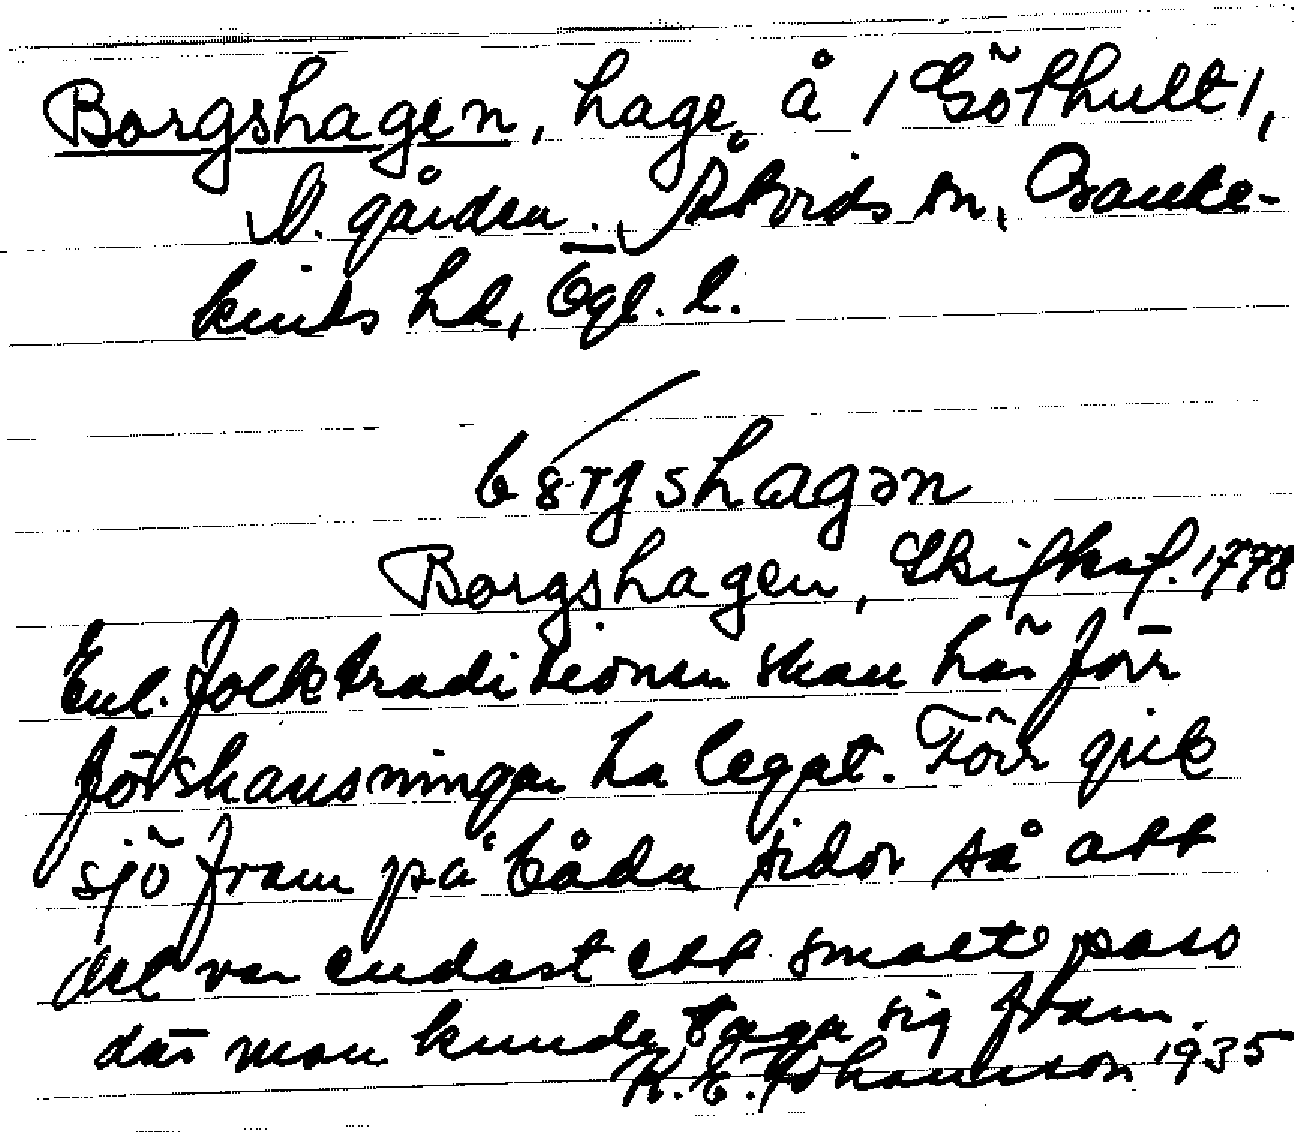 Borgshagen, hage å /Göthult/,
N. gården. Åtvids sn, Banke-
kinds hd, Ögl. l.
bɞrgshagən
Borgshagen, Skifteshf. 1778
Enl. folktraditionen skall här förr
förskansningar ha legat. Förr gick
sjö fram på båda sidor så att
det var endast ett smalt pass
där man kunde taga sig fram.
K. E. Johansson 1935